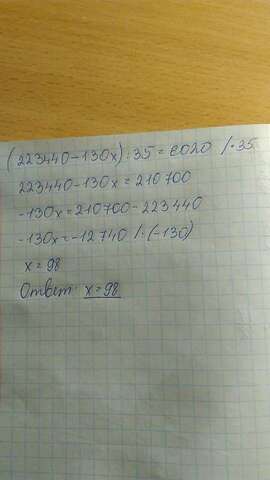 (223440-130x):35=6020 /·35
223440-130x=210700
-130x=210700-223440
-130x=-12740 /:(-130)
x=98
Ответ: x=98